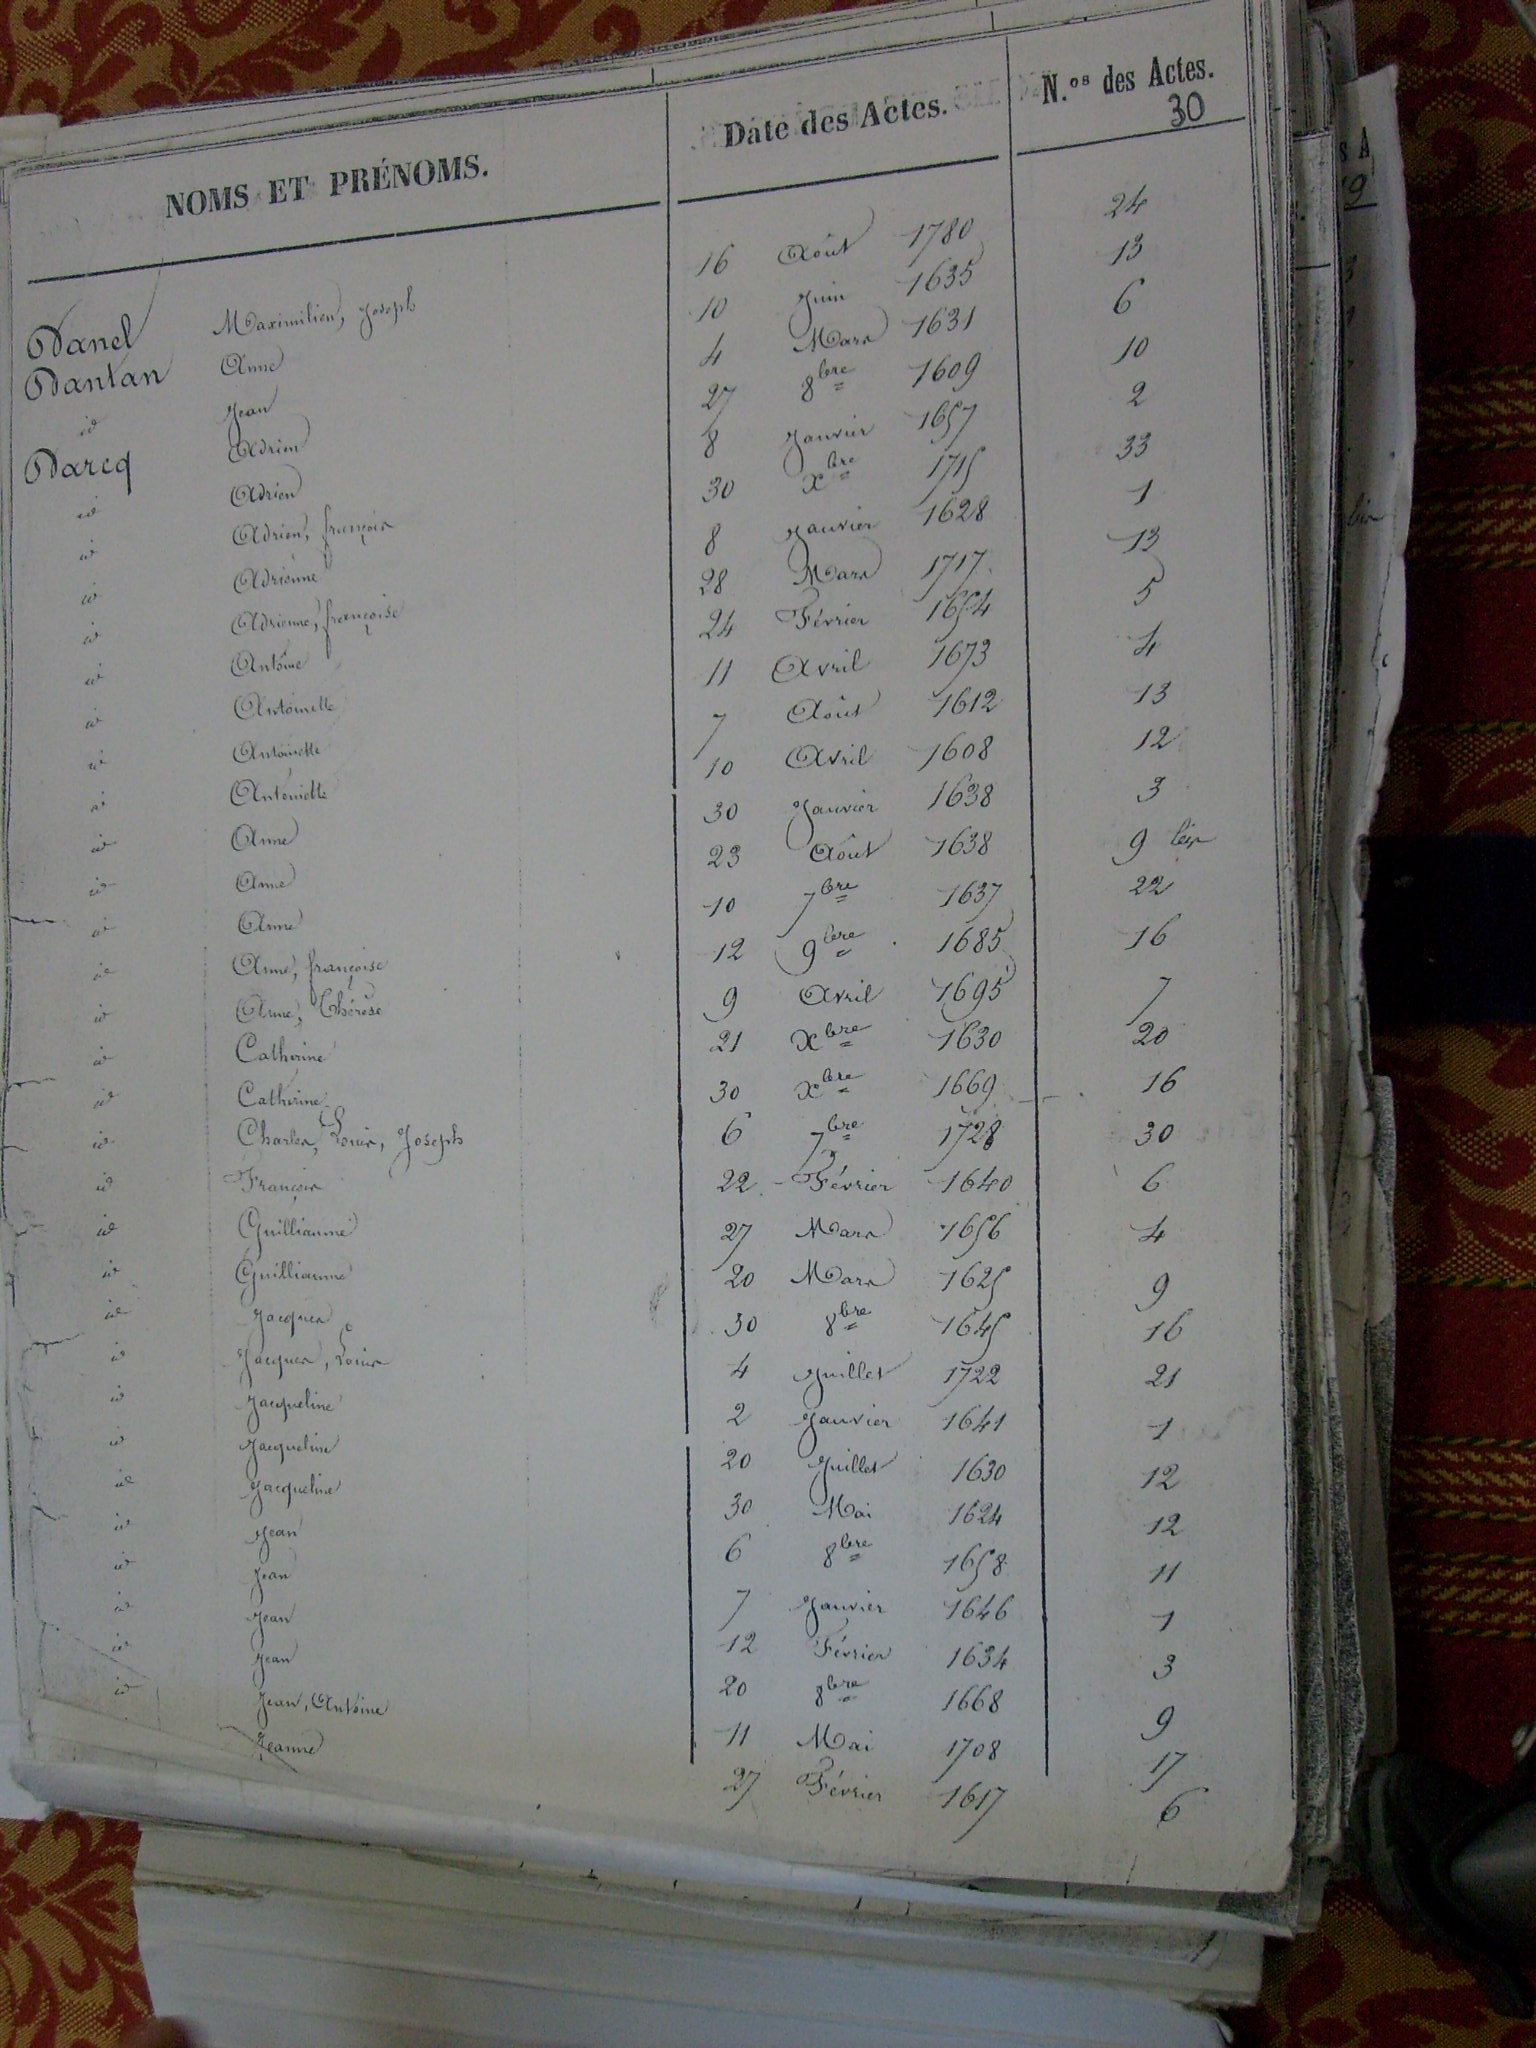 NOMS ET PRÉNOMS. Date des Actes. N.os des Actes.
30
Danel Maximilien, Joseph 16 Août 1780 24
Dantan Anne 10 Juin 1635 13
id Jean 4 Mars 1631 6
Darcq Adrien 27 8bre 1609 10
id Adrien 8 Janvier 1657 2
id Adrien, françois 30 Xbre 1715 33
id Adrienne 8 Janvier 1628 1
id Adrienne, françoise 28 Mars 1717 13
id Antoine 24 Février 1654 5
id Antoinette 11 Avril 1673 4
id Antoinette 7 Août 1612 13
id Antoinette 10 Avril 1608 12
id Anne 30 Janvier 1638 3
id Anne 23 Août 1638 9 bis
id Anne 10 7bre 1637 22
id Anne, françoise 12 9bre 1685 16
id Anne, Thérèse 9 Avril 1695 7
id Catherine 21 Xbre 1630 20
id Catherine 30 Xbre 1669 16
id Charles, Louis, Joseph 6 7bre 1728 30
id François 22 Février 1640 6
id Guilliaume 27 Mars 1656 4
id Guilliaume 20 Mars 1625 9
id Jacques 30 8bre 1645 16
id Jacques, Louis 4 Juillet 1722 21
id Jacqueline 2 Janvier 1641 1
id Jacqueline 20 Juillet 1630 12
id Jacqueline 30 Mai 1624 12
id Jean 6 8bre 1658 11
id Jean 7 Janvier 1646 1
id Jean 12 Février 1634 3
id Jean 20 8bre 1668 9
id Jean, Antoine 11 Mai 1708 17
Jeanne 27 Février 1617 6